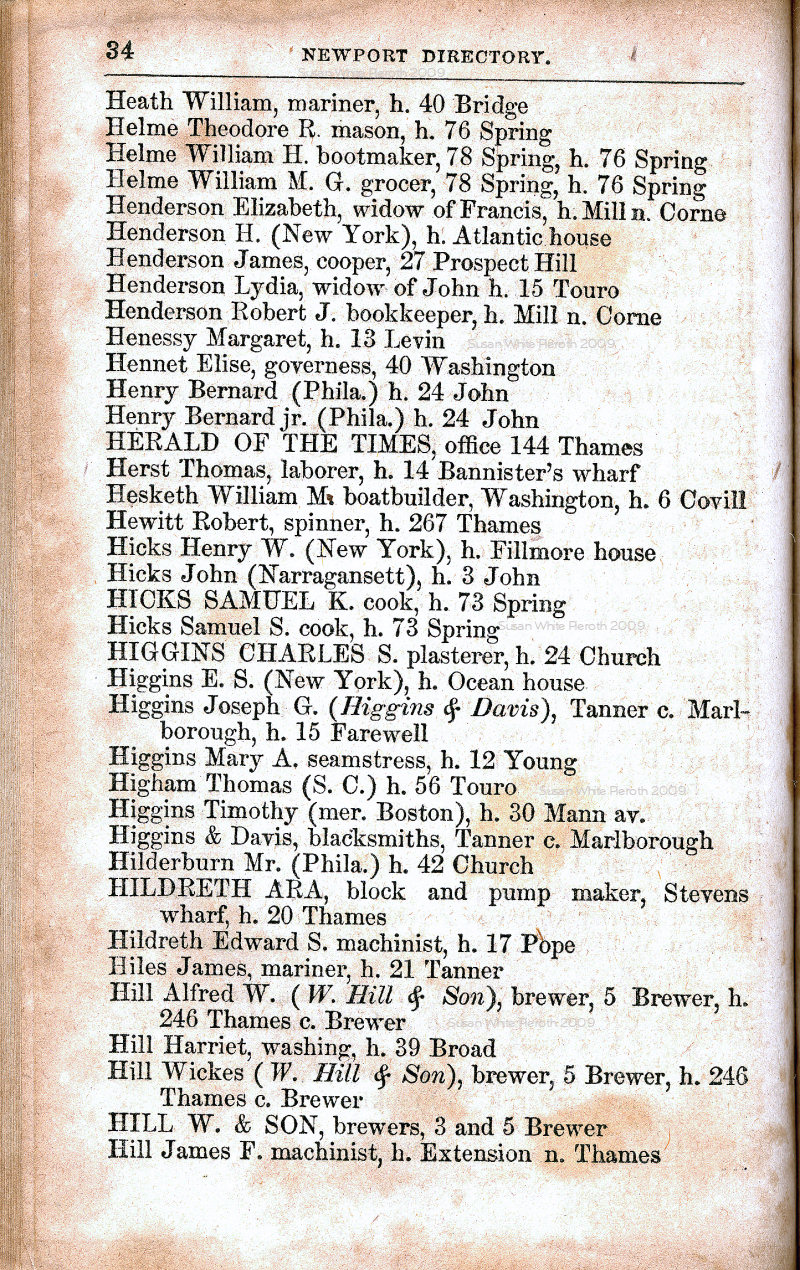 34 NEWPORT DIRECTORY.
Heath William, mariner, h. 40 Bridge
Helme Theodore R. mason, h. 76 Spring
Helme William H. bootmaker, 78 Spring, h. 76 Spring
Helme William M. G. grocer, 78 Spring, h. 76 Spring
Henderson Elizabeth, widow of Francis, h. Mill n. Corne
Henderson H. (New York), h. Atlantic house
Henderson James, cooper, 27 Prospect Hill
Henderson Lydia, widow of John h. 15 Touro
Henderson Robert J. bookkeeper, h. Mill n. Corne
Henessy Margaret, h. 13 Levin
Susan White Pieroth 2009
Hennet Elise, governess, 40 Washington
Henry Bernard (Phila.) h. 24 John
Henry Bernard jr. (Phila.) h. 24 John
HERALD OF THE TIMES, office 144 Thames
Herst Thomas, laborer, h. 14 Bannister's wharf
Hesketh William M. boatbuilder, Washington, h. 6 Covill
Hewitt Robert, spinner, h. 267 Thames
Hicks Henry W. (New York), h. Fillmore house
Hicks John (Narragansett), h. 3 John
HICKS SAMUEL K. cook, h. 73 Spring
Hicks Samuel S. cook, h. 73 Spring
Susan White Pieroth 2009
HIGGINS CHARLES S. plasterer, h. 24 Church
Higgins E. S. (New York), h. Ocean house
Higgins Joseph G. (Higgins & Davis), Tanner c. Marl-
borough, h. 15 Farewell
Higgins Mary A. seamstress, h. 12 Young
Higham Thomas (S. C.) h. 56 Touro
Susan White Pieroth 2009
Higgins Timothy (mer. Boston), h. 30 Mann av.
Higgins & Davis, blacksmiths, Tanner c. Marlborough
Hilderburn Mr. (Phila.) h. 42 Church
HILDRETH ARA, block and pump maker, Stevens
wharf, h. 20 Thames
Hildreth Edward S. machinist, h. 17 Pope
Hiles James, mariner, h. 21 Tanner
Hill Alfred W. (W. Hill & Son), brewer, 5 Brewer, h.
246 Thames c. Brewer
Susan White Pieroth 2009
Hill Harriet, washing, h. 39 Broad
Hill Wickes (W. Hill & Son), brewer, 5 Brewer, h. 246
Thames c. Brewer
HILL W. & SON, brewers, 3 and 5 Brewer
Hill James F. machinist, h. Extension n. Thames